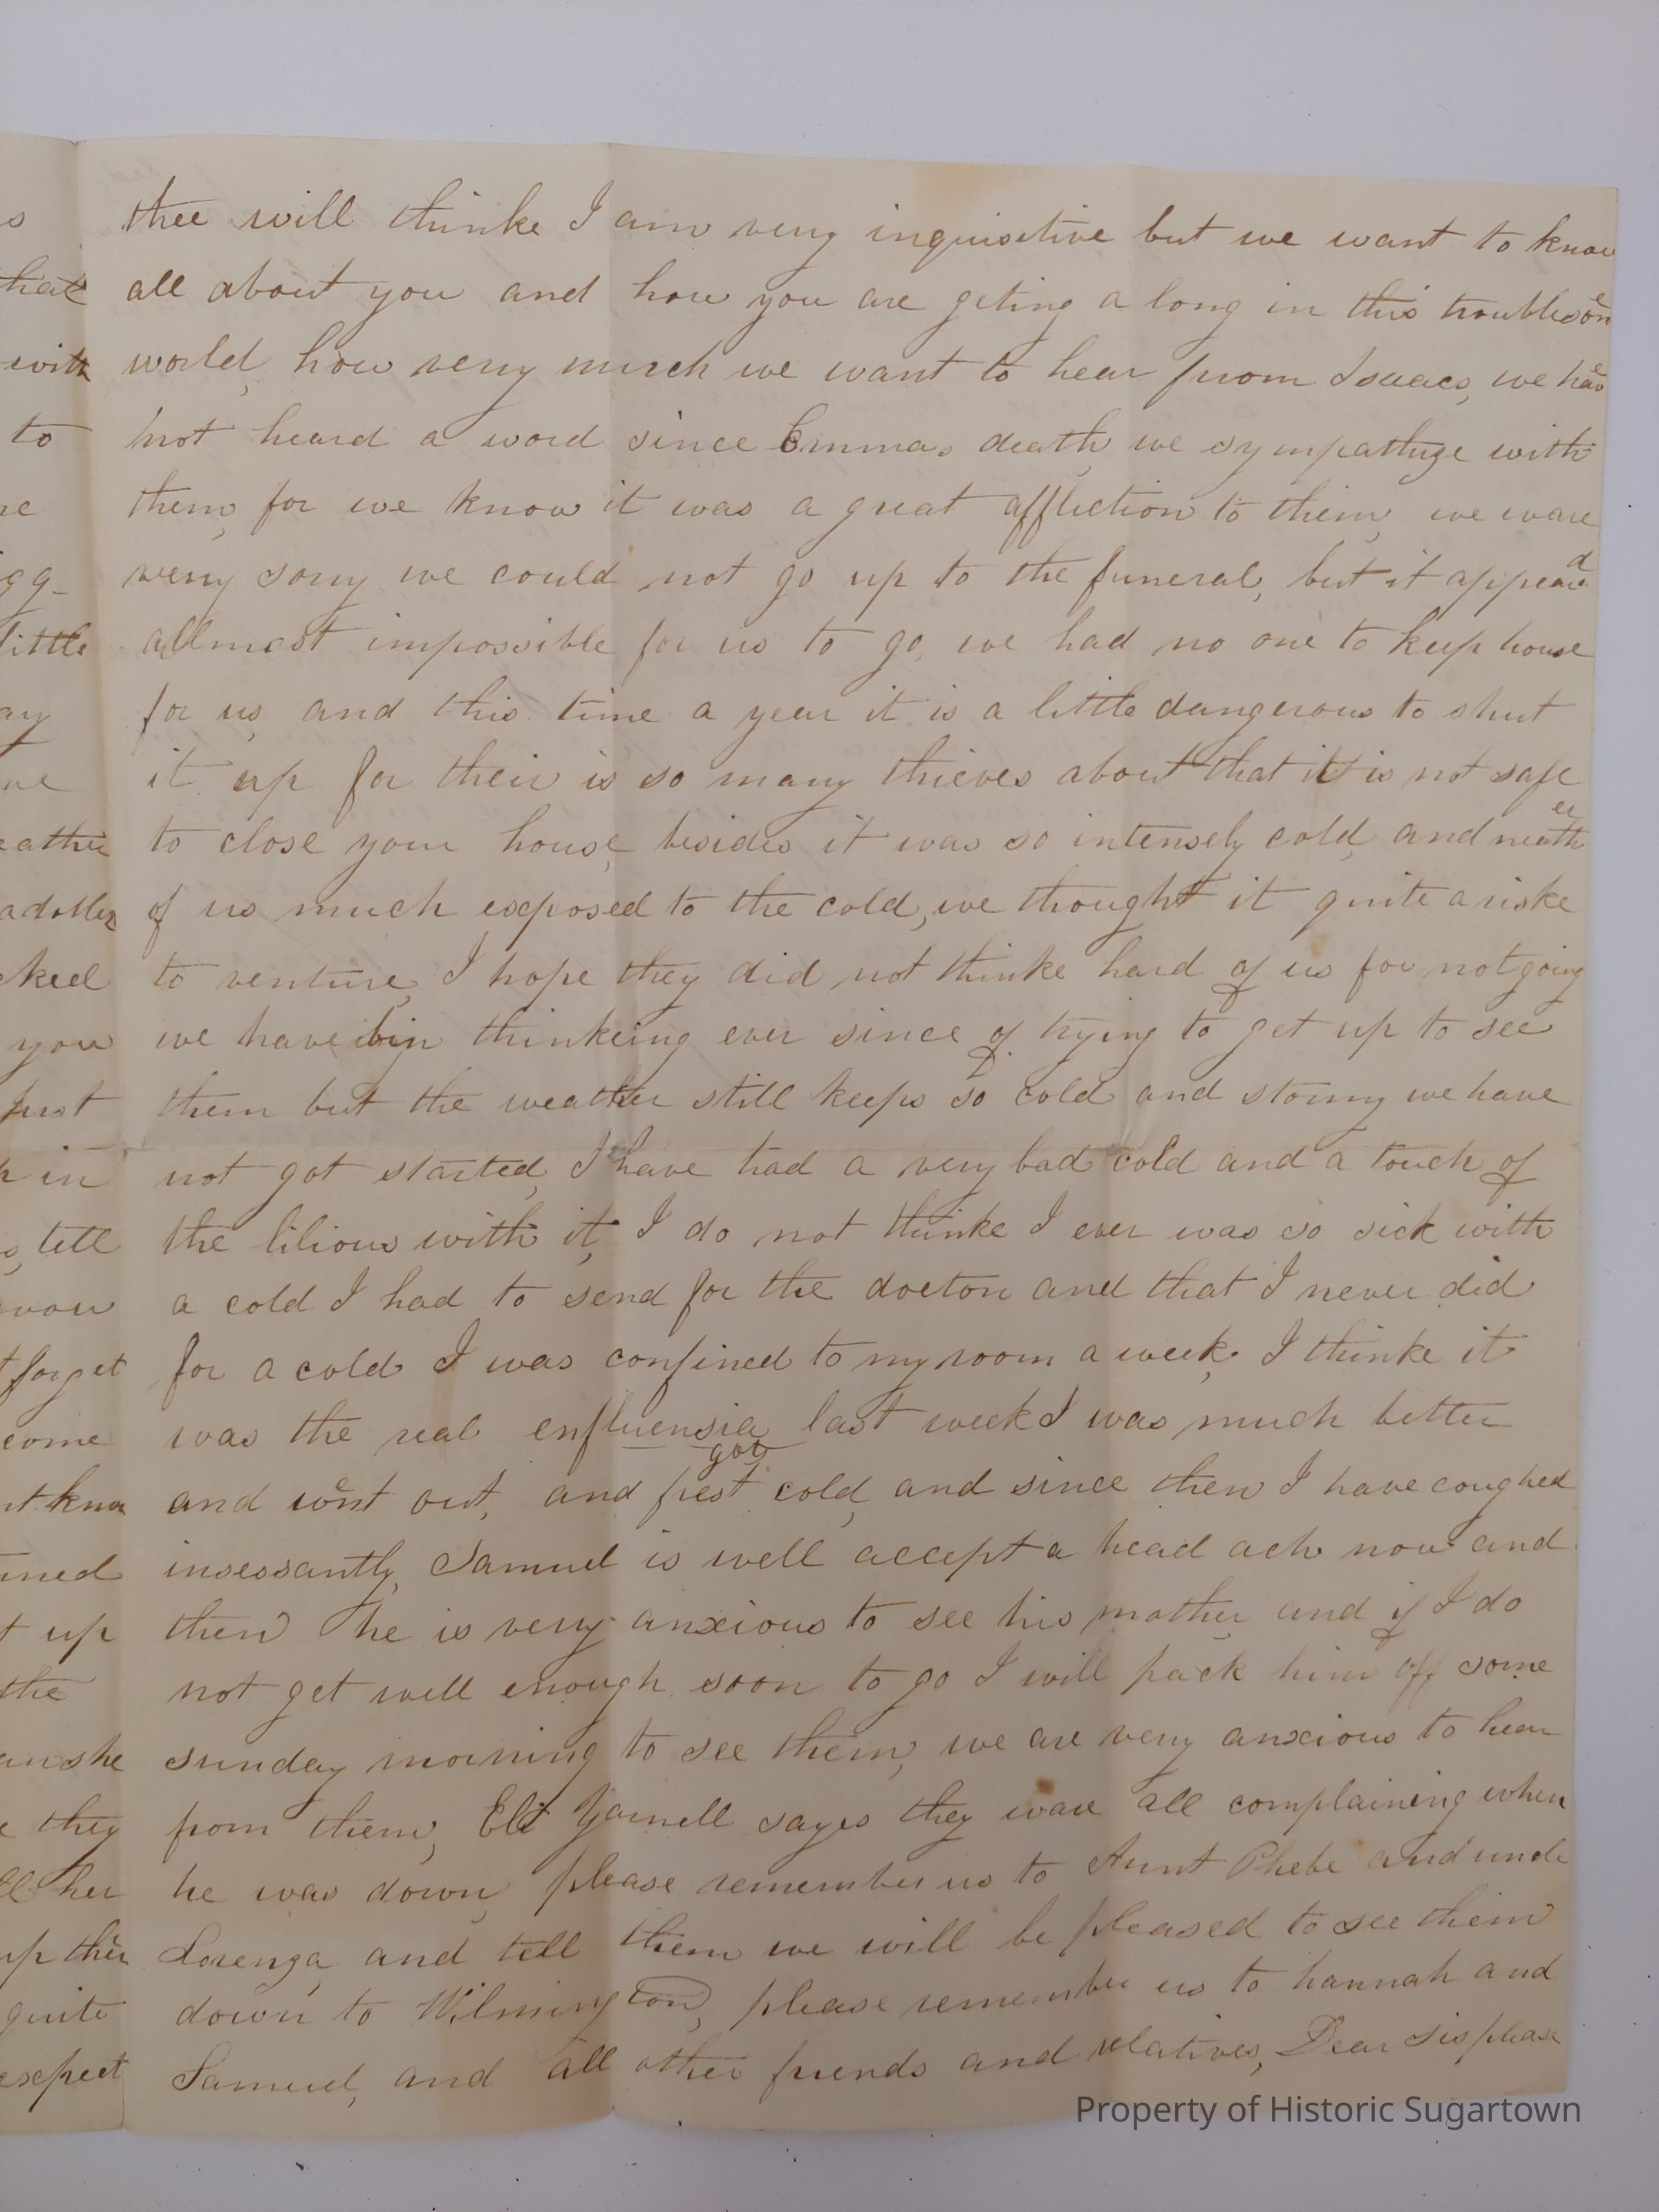 thee will thinke I am very inquisitive but we want to know
all about you and how you are geting a long in this troublesom
world, how very much we want to hear from Isaacs, we have
not heard a word since Emmas death, we sympathize with
them, for we know it was a great affliction to them, we ware
very sorry we could not go up to the funeral, but it appeard
allmost impossible for us to go, we had no one to keep house
for us, and this time a year it is a little dangerous to shut
it up for their is so many thieves about that it is not safe
to close your house, besides it was so intensely cold, and neather
of us much exposed to the cold, we thought it quite a riske
to venture, I hope they did not thinke hard of us for not going
we have bin thinkeing ever since of trying to get up to see
them but the weather still keeps so cold and stormy we have
not got started, I have had a very bad cold and a touch of
the bilious with it, I do not thinke I ever was so sick with
a cold I had to send for the doctor and that I never did
for a cold I was confined to my room a week, I thinke it
was the real enfluensia, last week I was much better
and went out, and got fresh cold, and since then I have coughed
insessantly, Samuel is well accept a head ach now and
then he is very anxious to see his mother and if I do
not get well enough soon to go I will pack him off some
sunday morning to see them, we are very anxious to hear
from them, Eli Yarnell sayes they ware all complaining when
he was down, please remember us to Aunt Phebe and uncle
Lorenza, and tell them we will be pleased to see them
down to Wilmington, please remember us to hannah and
Samuel, and all other friends and relatives, Dear Sis please
hat
with
to
little
you
in
tell
forget
come
up
the
she
they
her
quite
expect
Property of Historic Sugartown